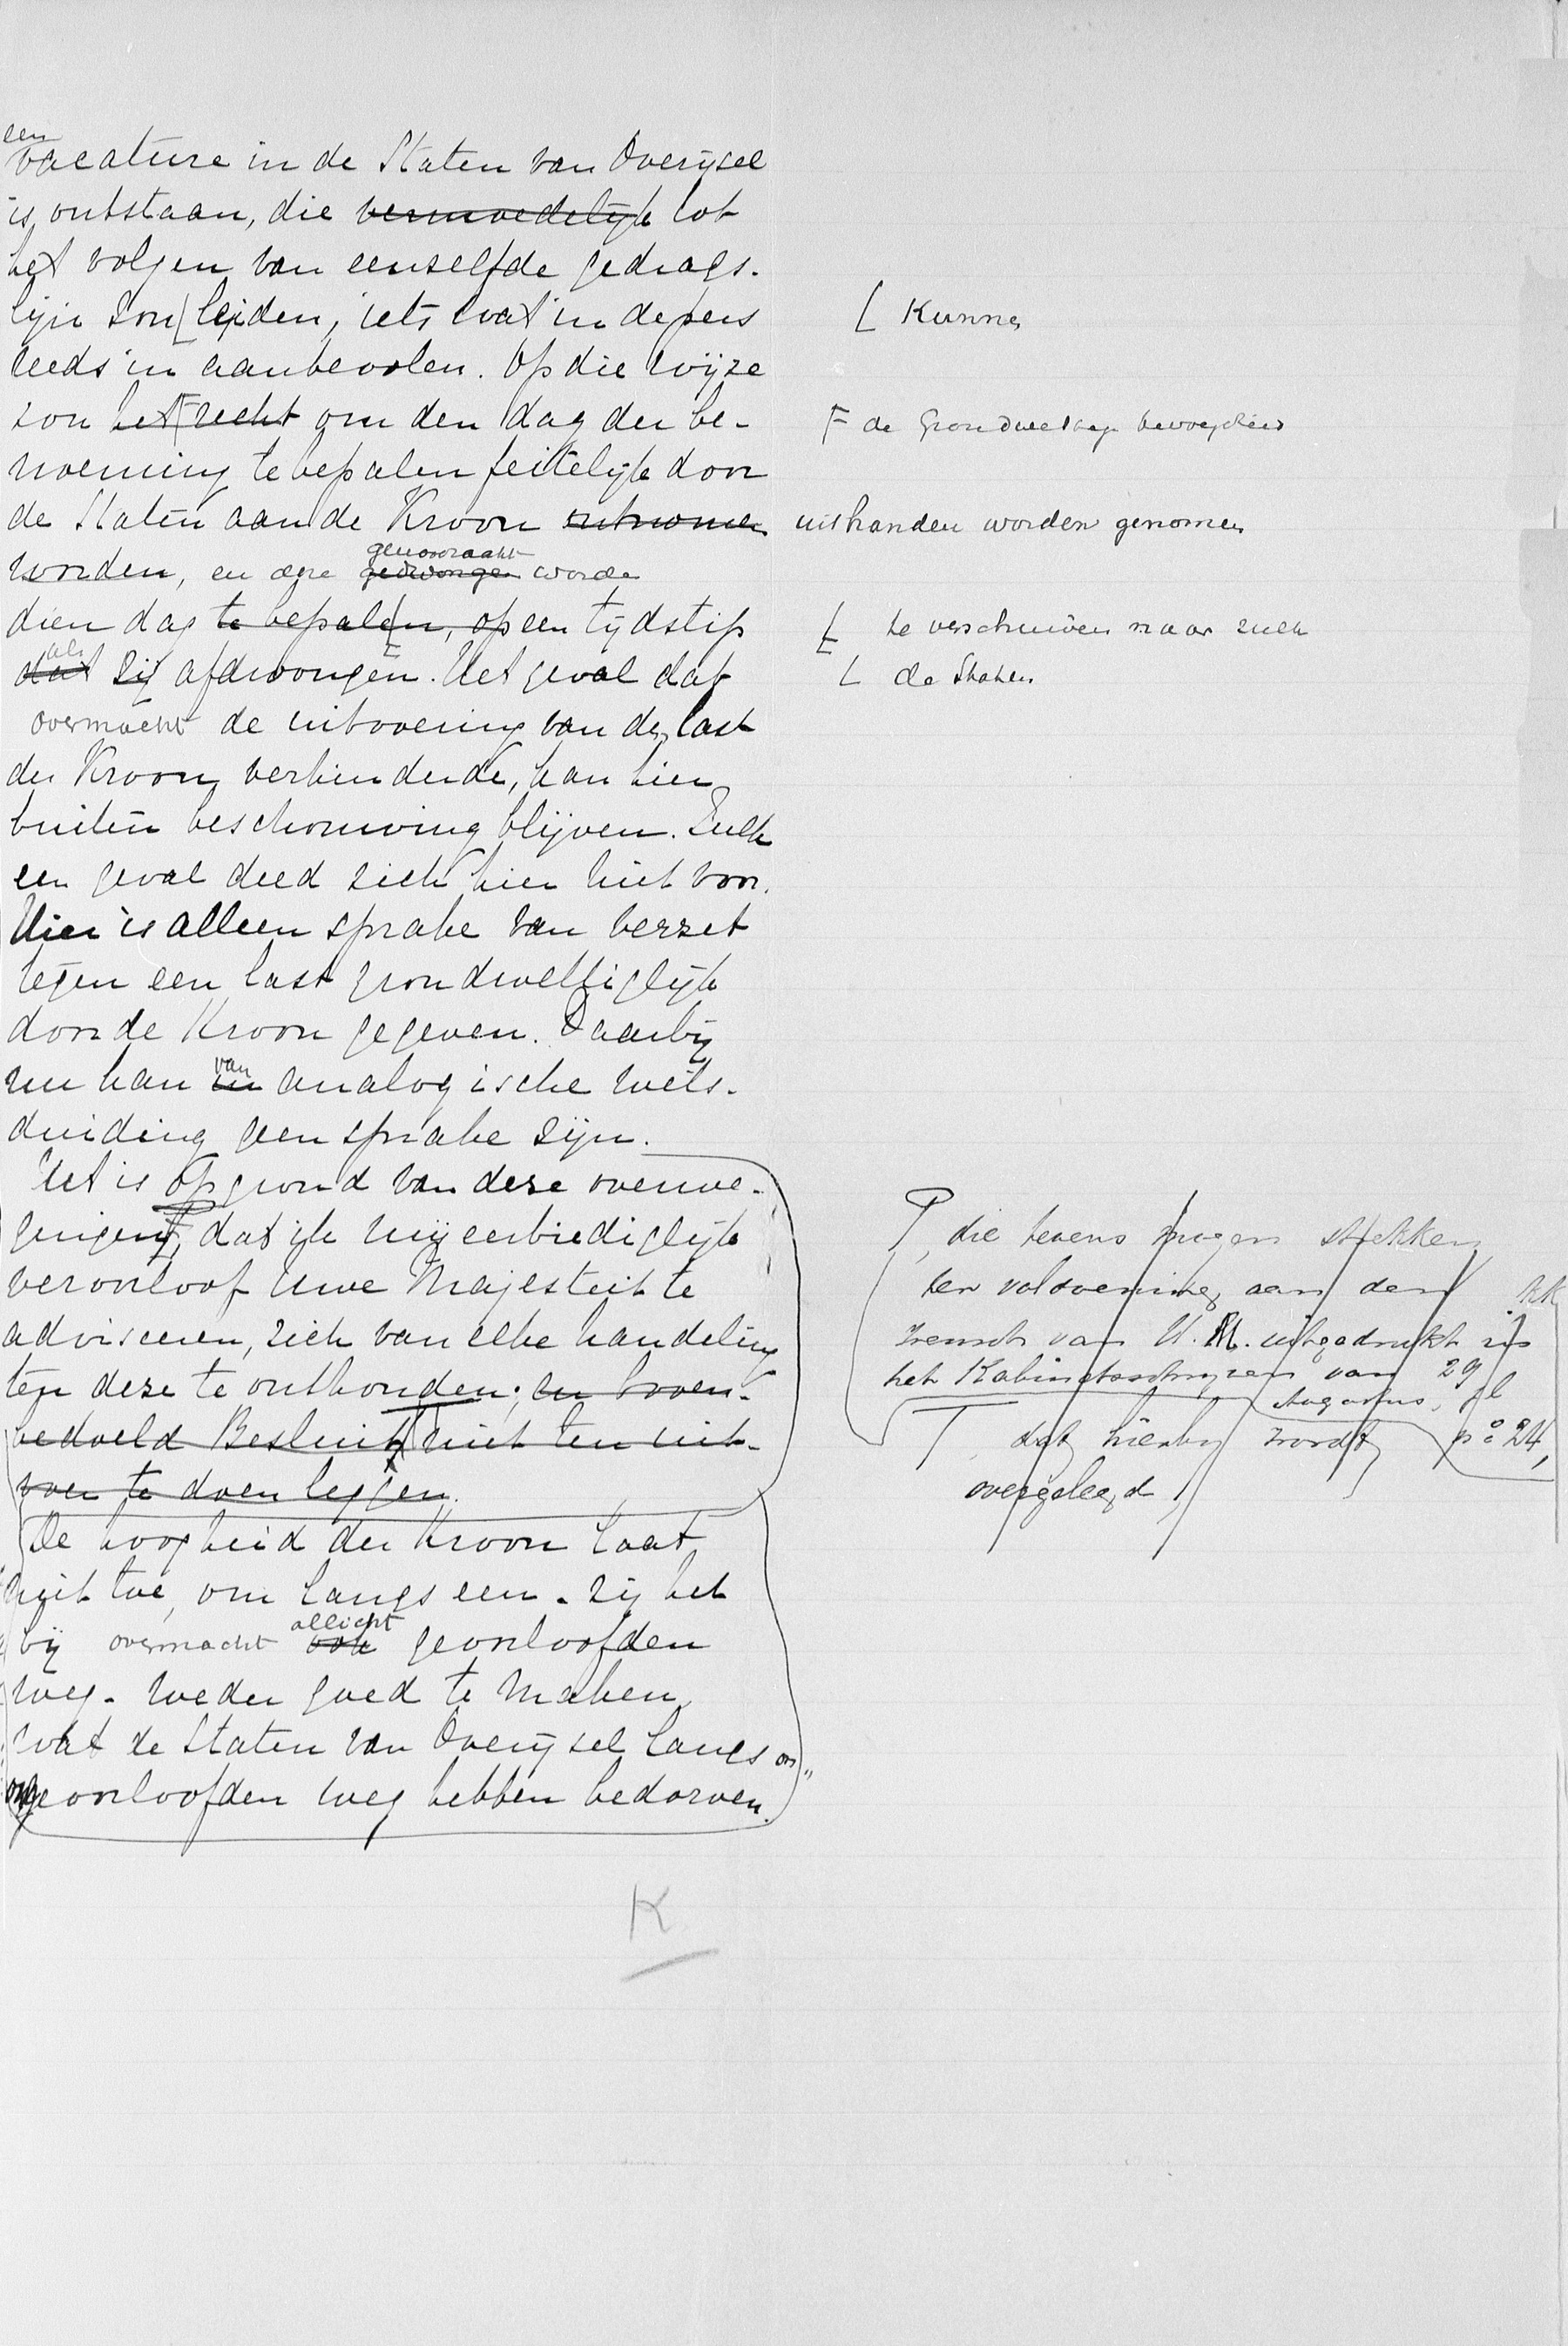 een
vacature in de Staten van Overijsel
is ontstaan, die vermoedelijk tot
het volgen van eenzelfde gedrags-
lijn zou [ leiden, iets wat in de pers
reeds is aanbevolen. Op die wijze
zou het recht om den dag der be-
noeming te bepalen feitelijk door
de Staten aan de Kroon ontnomen
worden, en deze gedwongen worden
genoodzaakt
dien dag te bepalen, op een tijdstip
als
dat zij afdwongen. Het geval dat
overmacht de uitvoering van de last
der Kroon verhinderde, kan hier
buiten beschouwing blijven. Zulk
een geval deed zich hier niet voor.
Hier is alleen sprake van verzet
tegen een last grondwettiglijk
door de Kroon gegeven. Daarbij
van
nu kan in analogische wets-
duiding geen sprake zijn.
Het is op grond van deze overwe-
gingen, dat ik mij eerbiediglijk
veroorloof Uwe Majesteit te
adviseeren, zich van elke handeling
ten deze te onthouden; en boven-
bedoeld Besluit niet ten uit-
voer te doen leggen.
De hoogheid der Kroon laat
niet toe, om langs een - zij het
allicht
bij overmacht ook geoorloofden
weg - weder goed te maken,
wat de Staten van Overijsel langs on"
ongeoorloofden weg hebben bedorven.
K
[ Kunnen
F de Grondwettige bevoegdheid
uit handen worden genomen
te verschuiven naar zulk
L de Staten
, die tevens mogen strekken
ter voldoening aan den
wensch van U. M. uitgedrukt in
het Kabinetsschrijven van 29
Augustus, jl
no 24,
dat hierbij wordt
overgelegd